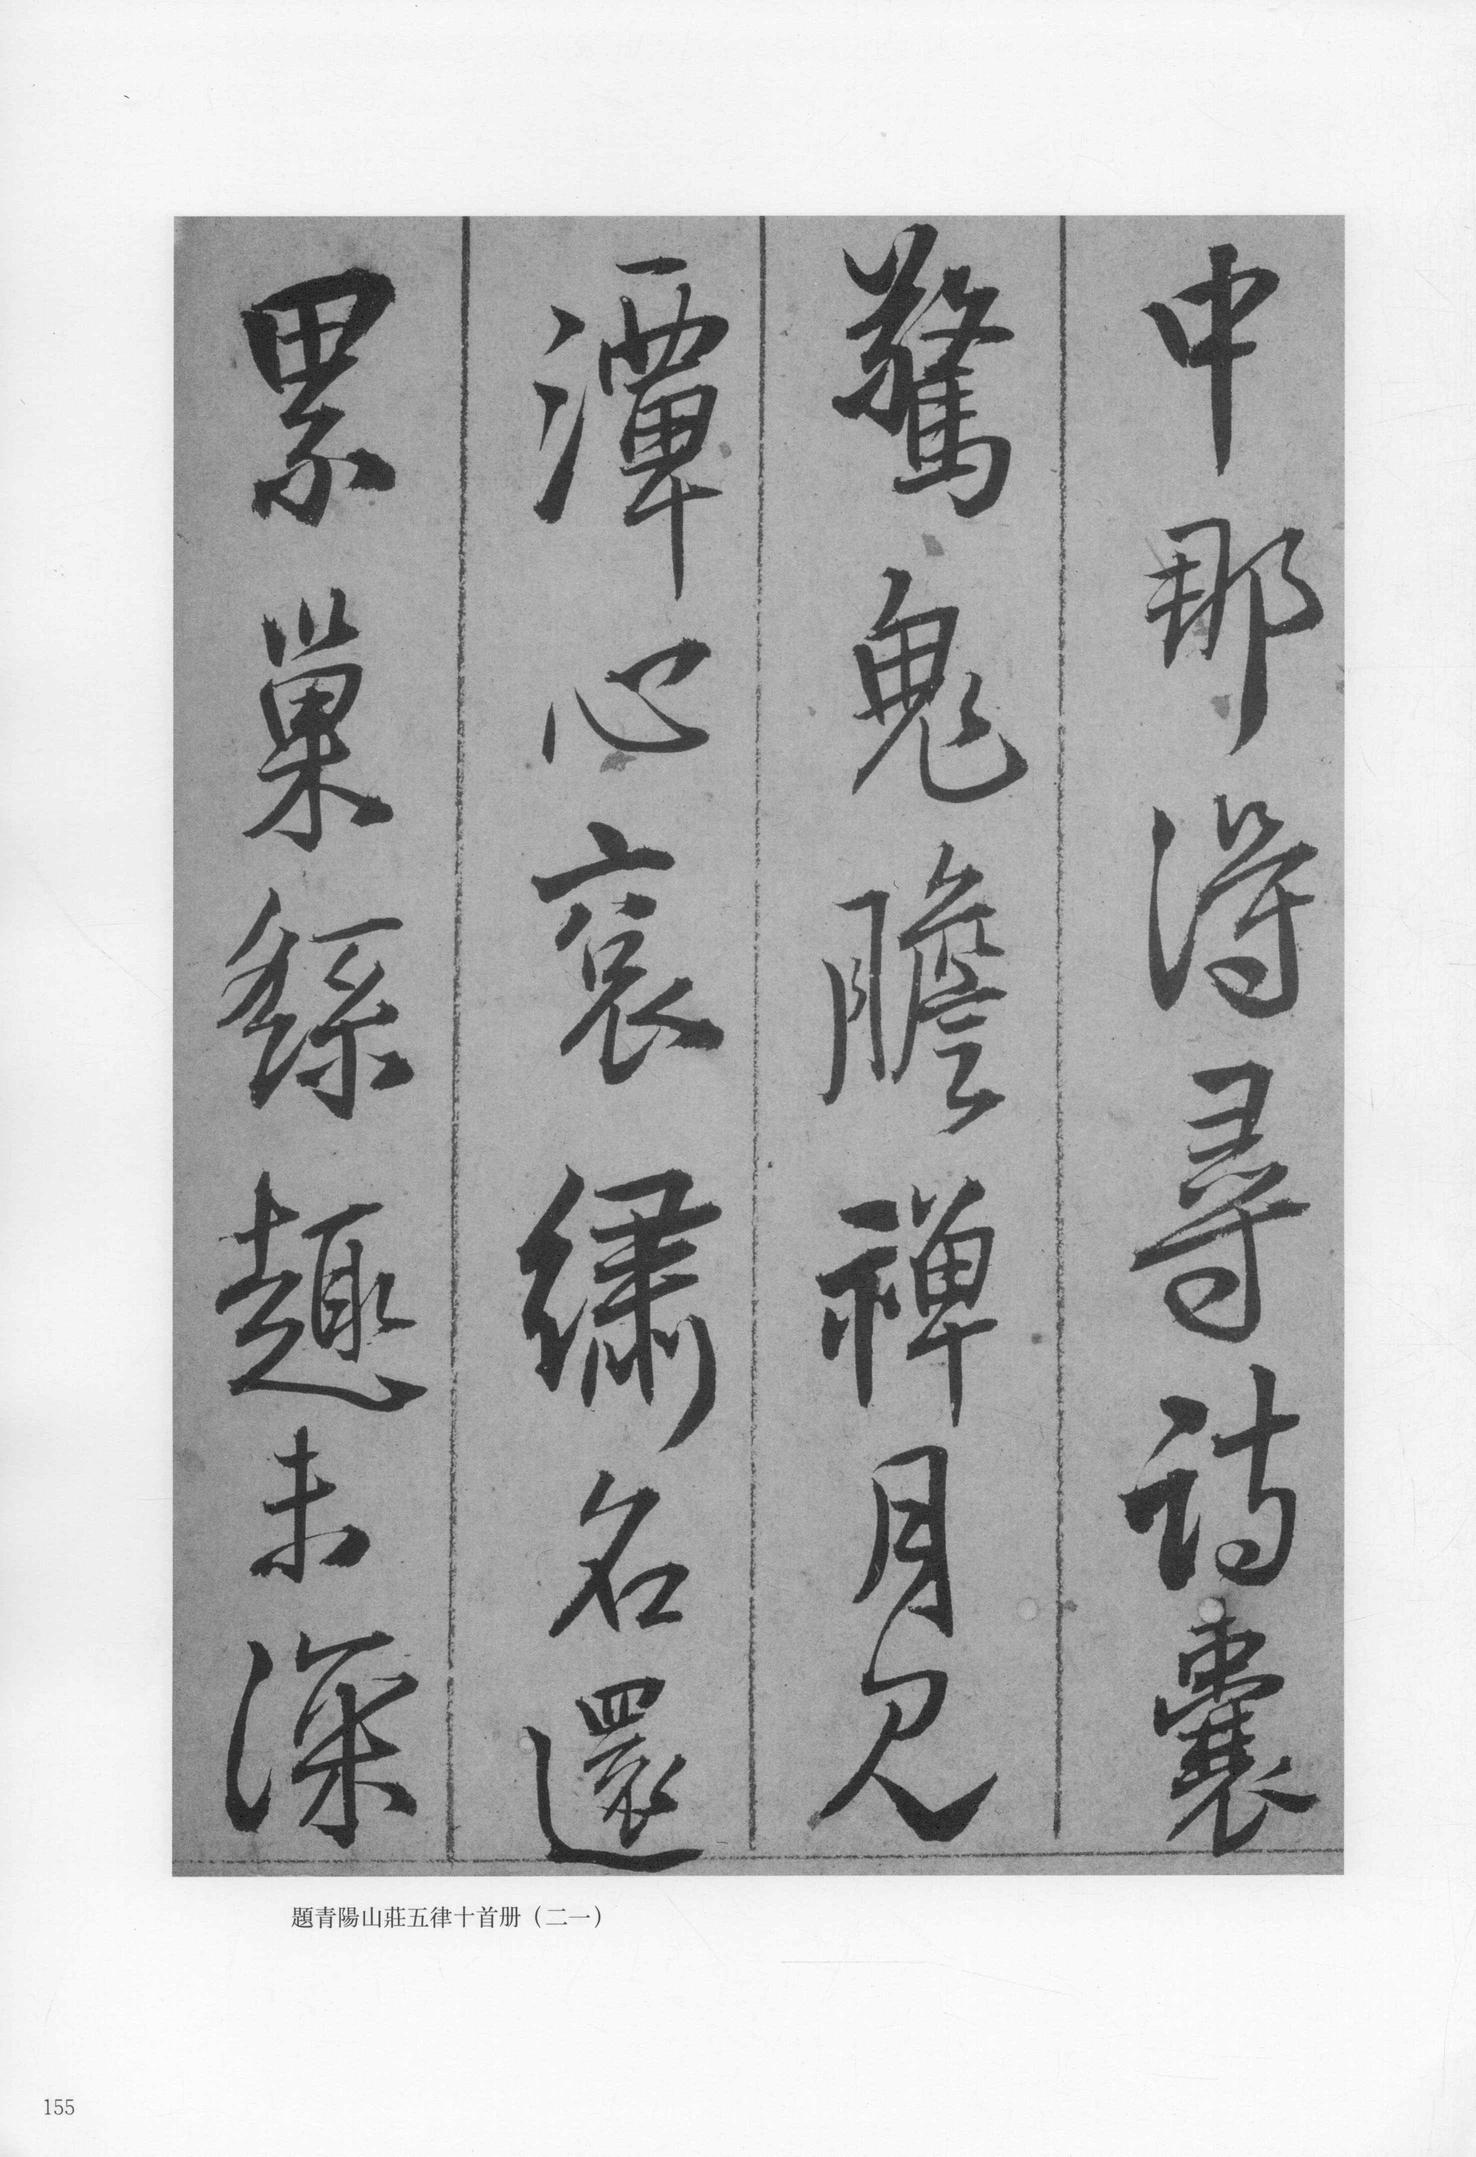 中那得尋詩囊
驚鬼膽禪月見
潭心衮繡名還
累巢繇趣未深
題青陽山莊五律十首册（二一）
155